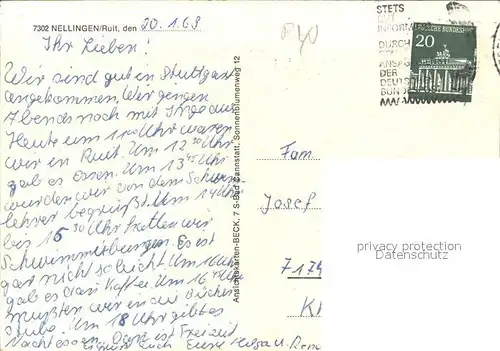 7302 NELLINGEN/Ruit, den 20.1.69
Ihr Lieben!
Wir sind gut in Stuttgart
angekommen. Wir gingen
Abends noch mit Inge aus
Heute um 11 00 Uhr waren
wir in Ruit. Um 12 30 Uhr
gab es Essen. Um 13 45 Uhr
wurden wir von dem Schwimm-
lehrer begrüßt. Um 14 Uhr
bis 15 30 Uhr hatten wir
Schwimmübungen. Es ist
gar nicht so leicht. Um 16 Uhr
gab es dan Kaffee. Um 16 45 Uhr
mußten wir in die Bücher
stube. Um 18 Uhr gibt es
Nachtessen. Dann ist Freizeit
Euch Eure Helga u.
Ansichtskarten-BECK, 7 S-Bad Cannstatt, Sonnenblumenweg 12
STETS
GUT
INFORM
DURCH
DEN
ANSAG
DER
DEUTSCH
BUND
20
DEUTSCHE BUNDESPOST
Fam
Josef
privacy protection
Datenschutz
717
K